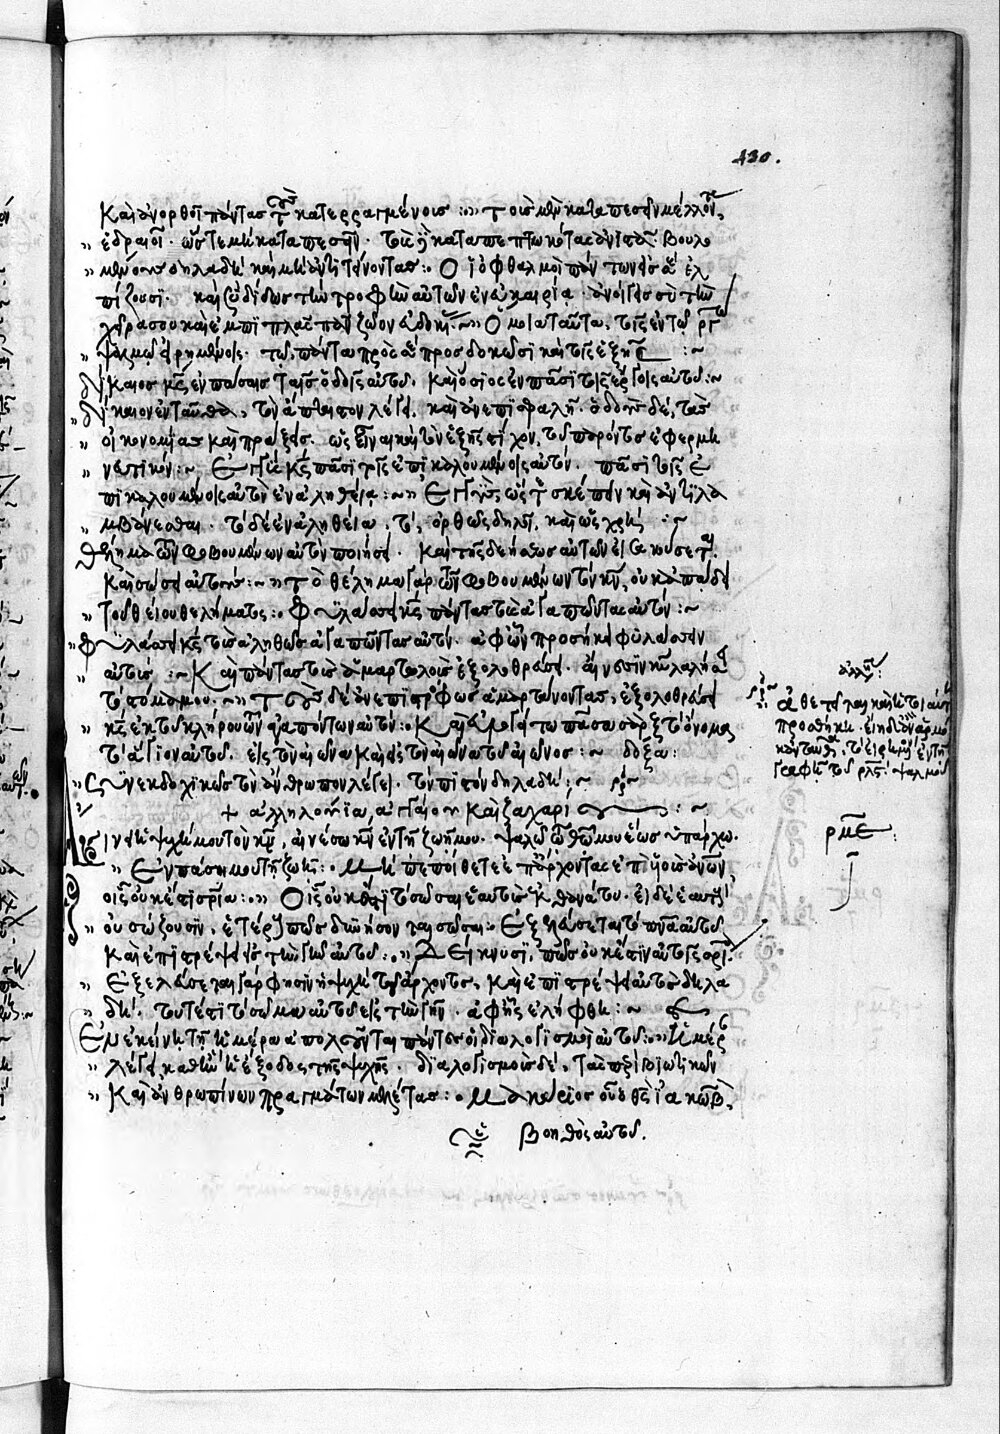 430.
Καὶ ἀνορθοῖ πάντας τοὺς κατερραγμένους :~ τοὺς μὲν καταπεσεῖν μέλλοντας,
ἑδραιοῖ. ὥστε μὴ καταπεσεῖν. τοὺς δὲ καταπεπτωκότας ἀνιστᾷ. βουλο
μένους δηλαδὴ καὶ μὴ ἀντιτείνοντας :· Οἱ ὀφθαλμοὶ πάντων εἰς σὲ ἐλ
πίζουσι. καὶ σὺ δίδως τὴν τροφὴν αὐτῶν ἐν εὐκαιρίᾳ. ἀνοίγεις σὺ τὴν
χεῖρά σου καὶ ἐμπιπλᾷς πᾶν ζῷον εὐδοκίας :~ Ὅμοια ταῦτα, τοῖς ἐν τῷ ργῳ
ψαλμῷ εἰρημένοις. τῷ, πάντα πρὸς σὲ προσδοκῶσι καὶ τοῖς ἑξῆς :~
Δίκαιος κς ἐν πάσαις ταῖς ὁδοῖς αὐτοῦ. καὶ ὅσιος ἐν πᾶσι τοῖς ἔργοις αὐτοῦ :~
Δίκαιον ἐνταῦθα, τὸν ἄπταιστον λέγει. καὶ ἀνεπισφαλῆ. ὁδοὺς δὲ, τὰς
οἰκονομίας καὶ πράξεις. ὡς εἶναι καὶ τὸν ἑξῆς στίχον, τοῦ παρόντος ἐφερμη
νευτικόν :~ Ἐγγὺς κς πᾶσι τοῖς ἐπικαλουμένοις αὐτόν. πᾶσι τοῖς ἐ
πικαλουμένοις αὐτὸν ἐν ἀληθείᾳ :~ Ἐγγὺς ὡς τὸ σκέπειν καὶ ἀντιλα
μβάνεσθαι. τὸ δὲ ἐν ἀληθείᾳ, τὸ, ὀρθῶς δηλοῖ, καὶ ὡς χρή :~
Θέλημα τῶν φοβουμένων αὐτὸν ποιήσει. καὶ τῆς δεήσεως αὐτῶν εἰσακούσεται.
Καὶ σώσει αὐτούς :~ Τὸ θέλημα γὰρ τῶν φοβουμένων τὸν κν, οὐκ ἀπᾴδει
τοῦ θείου θελήματος :· Φυλάσσει κς πάντας τοὺς ἀγαπῶντας αὐτόν :~
Φυλάσσει κς τοὺς ἀληθῶς ἀγαπῶντας αὐτόν. ἀφ' ὧν προσήκει φυλάσσειν
αὐτούς :~ Καὶ πάντας τοὺς ἁμαρτωλοὺς ἐξολοθρεύσει. αἴνεσιν κυ λαλήσει
τὸ στόμα μου. ~ Τοὺς δὲ ἀνεπιστρόφως ἁμαρτάνοντας, ἐξολοθρεύσει
κς ἐκ τοῦ κλήρου τῶν ἀγαπώντων αὐτόν :· Καὶ εὐλογείτω πᾶσα σὰρξ τὸ ὄνομα
τὸ ἅγιον αὐτοῦ. εἰς τὸν αἰῶνα καὶ εἰς τὸν αἰῶνα τοῦ αἰῶνος :~ δόξα:
Συνεκδοχικῶς τὸν ἄνθρωπον λέγει. τὸν πιστὸν δηλαδή :~
+ ἀλληλούϊα, ἀγγαίου καὶ ζαχαρίου :~
Αἴνει ἡ ψυχή μου τὸν κν, αἰνέσω κν ἐν τῇ ζωῇ μου. ψαλῶ τῷ θῷ μου ἕως ὑπάρχω.
Ἐν πάσῃ μου τῇ ζωῇ :· Μὴ πεποίθετε ἐπ' ἄρχοντας ἐπὶ υἱοὺς ἀνων,
οἷς οὐκ ἔστι σρία :· Οἷς οὐκ ἔστι τὸ σῶσαι ἑαυτοὺς ἐκ θανάτου. εἰ δὲ ἑαυτοὺς
οὐ σώζουσιν, ἑτέρους πῶς δυνήσονται σῶσαι :· Ἐξελεύσεται τὸ πνα αὐτοῦ,
Καὶ ἐπιστρέψει εἰς τὴν γῆν αὐτοῦ :· Δείκνυσι, πῶς οὐκ ἔστιν αὐτοῖς σρία.
Ἐξελεύσεται γὰρ φησὶν ἡ ψυχὴ τοῦ ἄρχοντος, καὶ ἐπιστρέψει αὐτὸς δηλα
δή. τουτέστι τὸ σῶμα αὐτοῦ εἰς τὴν γῆν. ἀφ' ἧς ἐλήφθη :~
Ἐν ἐκείνῃ τῇ ἡμέρᾳ ἀπολοῦνται πάντες οἱ διαλογισμοὶ αὐτοῦ :~ Ἡμέραν
λέγει, καθ' ἣν ἡ ἔξοδος τῆς ψυχῆς. διαλογισμοὺς δέ, τὰς περὶ βιωτικῶν
Καὶ ἀνθρωπίνων πραγμάτων μελέτας :· Μακάριος οὗ ὁ θς ἰακὼβ,
βοηθὸς αὐτοῦ.
ρμε: